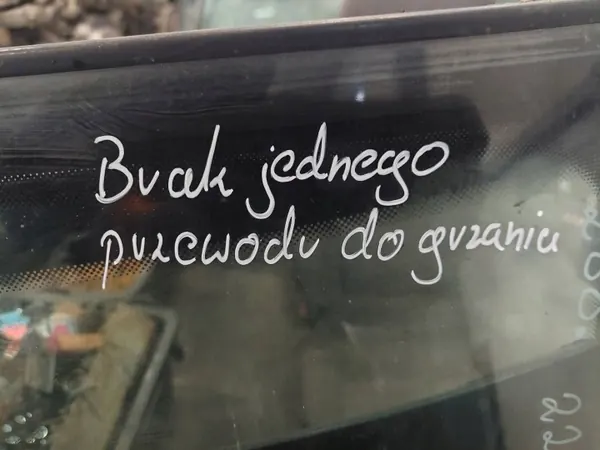 Brak jednego
przewodu do grzania